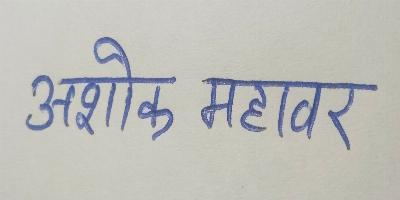 अशोक महावर